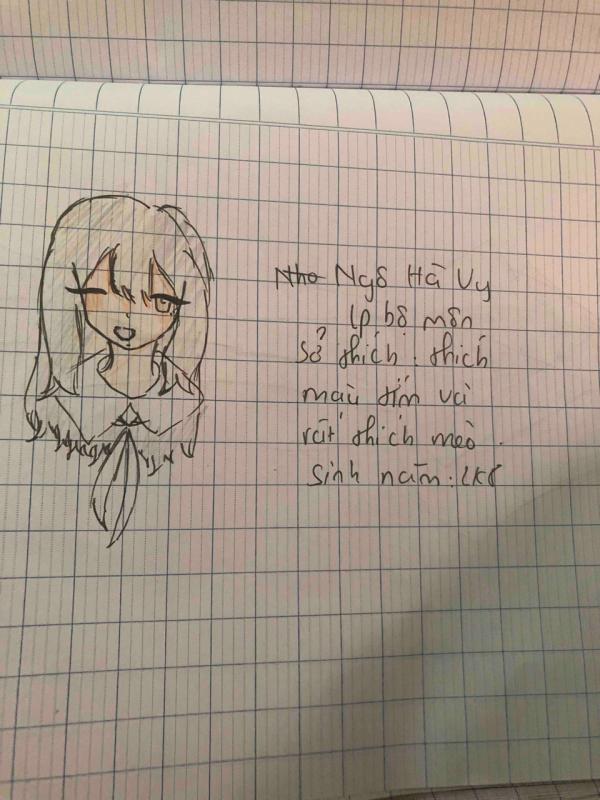 Nho Ngô Hà Vy
lp bộ môn
sở thích : thích
màu tím và
rất thích mèo.
sinh năm : 2k8